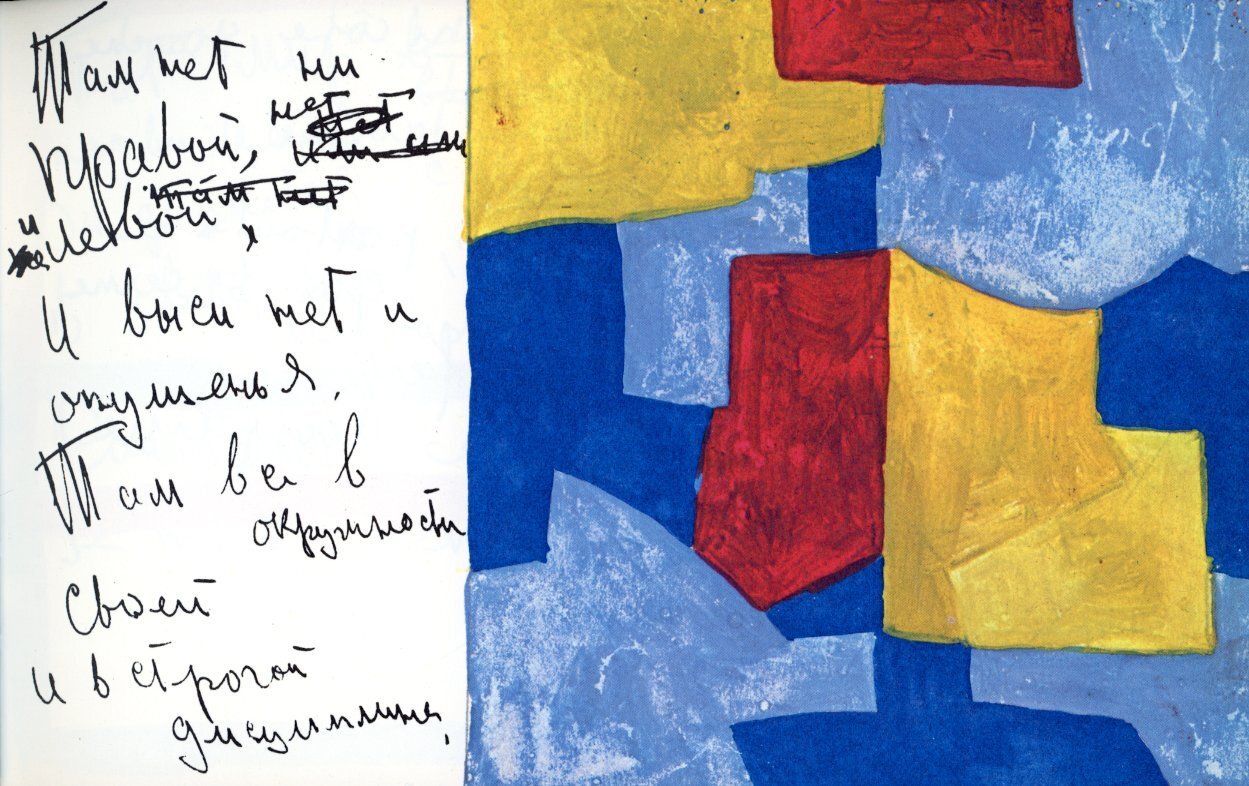 Там нет ни
нет
правой,
там нет
и левой,
И выси нет и
опущенья,
Там все в
окружности
своей
и в строгой
дисциплине,